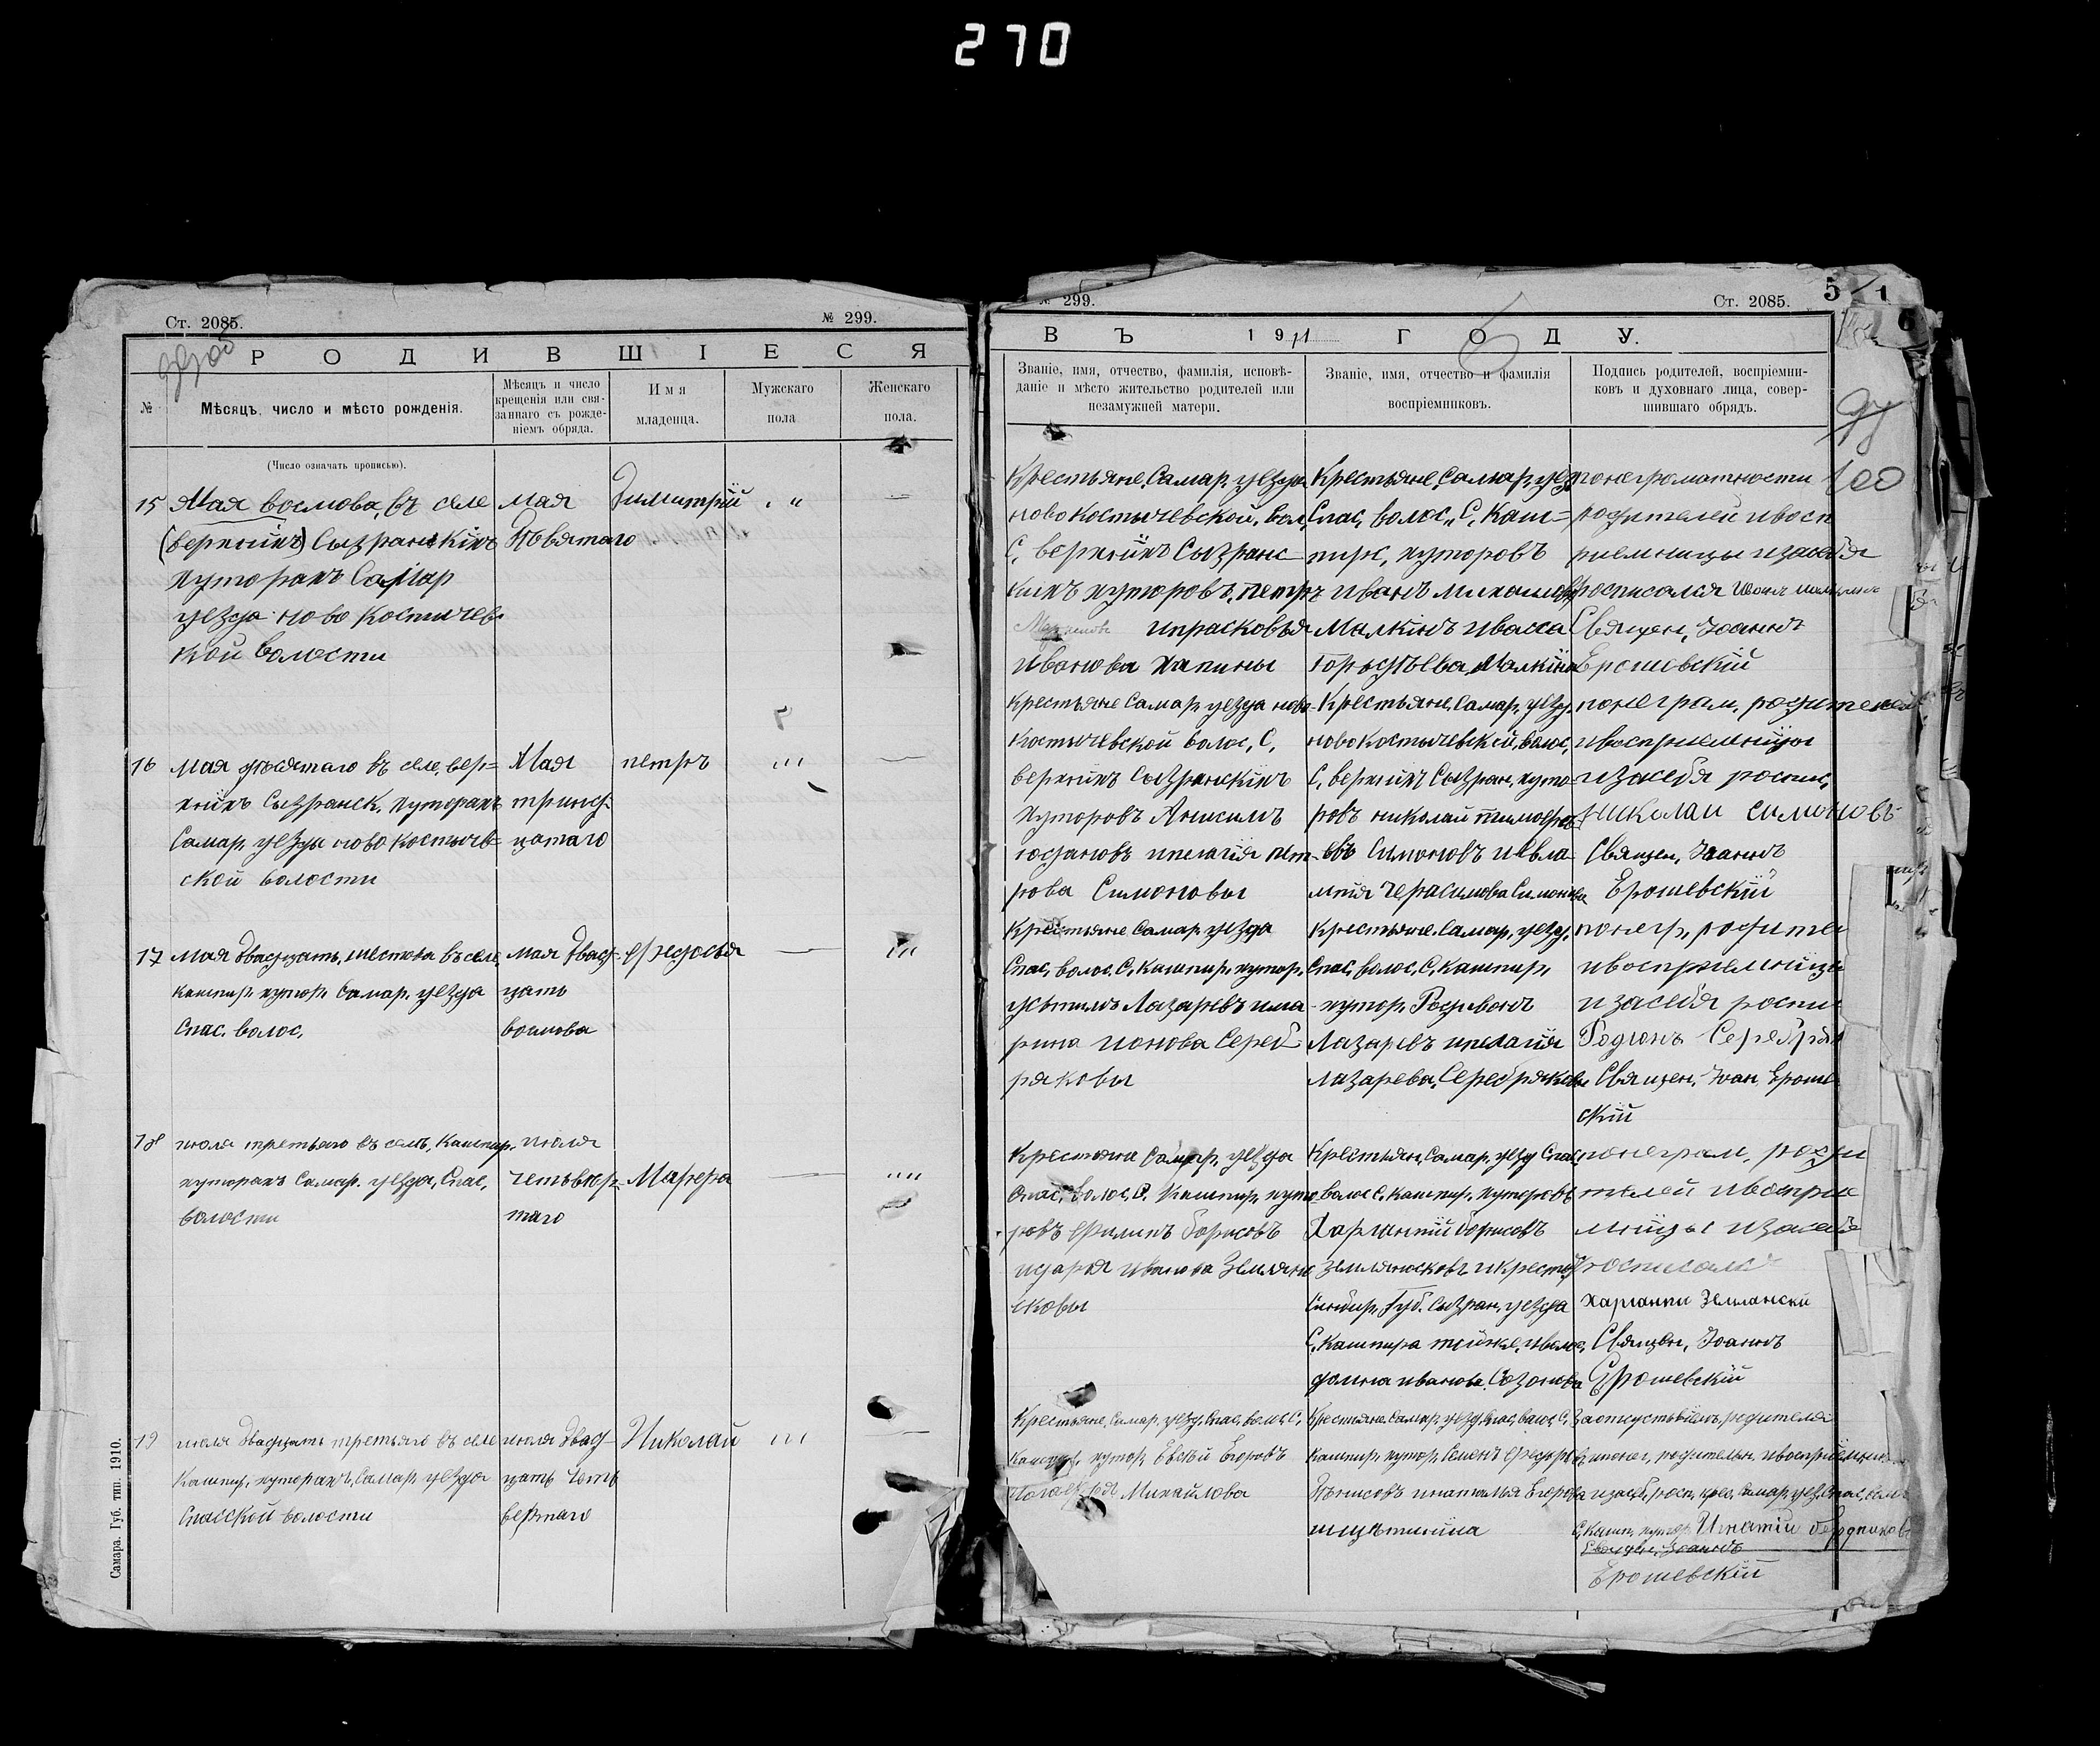 270
Ст. 2085.
№ 299.
РОДИВШІЕСЯ
№
Мѣсяцъ, число и мѣсто рожденія.
Мѣсяцъ и число
крещенія или свя-
заннаго съ рожде-
ніемъ обряда.
Имя
младенца.
Мужскаго
пола
Женскаго
пола.
(Число означать прописью).
15 Мая восмова, въ селе
(верхнихъ) Сызранскихъ
хуторахъ Самар
уезда ново Костычев
кой волости
мая
Дѣвятаго
Димитрий
16 мая дѣсятаго въ селе, верх=
нихъ Сызранск, хуторахъ
Самар, уезда ново костыче=
ской волости
Мая
тринад-
цатаго
петръ
17 мая двадцать, шестова въ селе,
кашпир, хутор, Самар, уезда
Спас. волос,
мая двад-
цать
восмова
Федосья
18 июля третьяго въ селе, Кашпир,
хуторахъ Самар. уезда, Спас,
волости
июля
четьвер-
таго
Мавра
19 июля двадцать третьяго въ селе
Кашпир, хуторахъ, Самар уезда
Спасской волости
июля двад-
цать четь
вертаго
Николай
Самара. Губ. тип. 1910.
№ 299.
Ст. 2085.
5
1
ВЪ 1911 ГОДУ.
Званіе, имя, отчество, фамилія, исповѣ-
даніе и мѣсто жительство родителей или
незамужней матери.
Званіе, имя, отчество и фамилія
воспріемниковъ.
Подпись родителей, воспріемни-
ковъ и духовнаго лица, совер-
шившаго обрядъ.
Крестьяне, Самар, уезда
ново Костычевской, вол,
С, верхнихъ Сызранс
кихъ хуторовъ, петръ
ипрасковья
Иванова Хапины
Крестьяне, Самар, уез
Спас, волос, С, Каш=
пирс, хуторовъ
иванъ михаилов
Малкинъ иваса
Гордѣева, Малкина
понеграматности
родителей ивосп
риемницы изасебя
росписался Иван
Священ, Иоаннъ
Ерошевский
100
Крестьяне Самар, уезда ново-
костычевской волос, С,
верхнихъ Сызранскихъ
хуторовъ Анисимъ
юдановъ ипелагия пет-
рова Симоновы
Крестьяне, Самар, уезд,
ново костычевской, волос,
С, верхнихъ Сызран, хуто-
ровъ николай тимофе
евъ Симоновъ иевла-
мпия Черасимова Симонова
понеграм, родителей
ивосприемницы
изасебя роспис,
николаи симоновъ
Священ, Иоаннъ
Ерошевский
Крестьяне Самар уезда
Спас, волос, С, Кашпир, хутор,
устимъ Лазаревъ има-
рина ионова Сереб
ряковы
Крестьяне, Самар, уезд,
Спас, волос, С, Кашпир,
хутор, Родивонъ
Лазаревъ ипелагия
Лазарева, Серебряковы
понегр, родител
ивосприемницы
изасебя роспис
Родионъ Серебряк
Священ, Иоан, Ероше
ский
Крестьяна Самар, уезда
Спас, волос, С, Кашпир, хуто
ровъ Филипъ борисовъ
идарья иванова Землянс
ковы
Крестьян, Самар, уезд Спас,
волос С, Кашпир, хуторовъ
Харлантий борисовъ
Землянсковъ икресть
Синбир, Губ. Сызран, уезда
С, Кашпира тойже, иволос,
домна иванова, Созонова
понеграм, роди
телей ивоспри
мницы изасебя
росписалс
Харланпи Земланскй
Священ, Иоаннъ
Ерошевский
Крестьяне, Самар, уезд, Спас, волос, С,
Кашпир, хутор, Евсѣй Егоровъ
Михайлова
Крестьяне Самар, уезд, Спас, волос, С,
Кашпир, хутор, Семенъ Федоров
Дѣнисовъ инаталья Егорова
щуктилина
Заотсуствиемъ, родителя
ипонег, родительн, ивосприемниц
изасеб, росп, крес, Самар, уезд, Спас, вол,
С, Кашп, хутор, Игнатий бородиновъ
Священ, Иоаннъ
Ерошевский